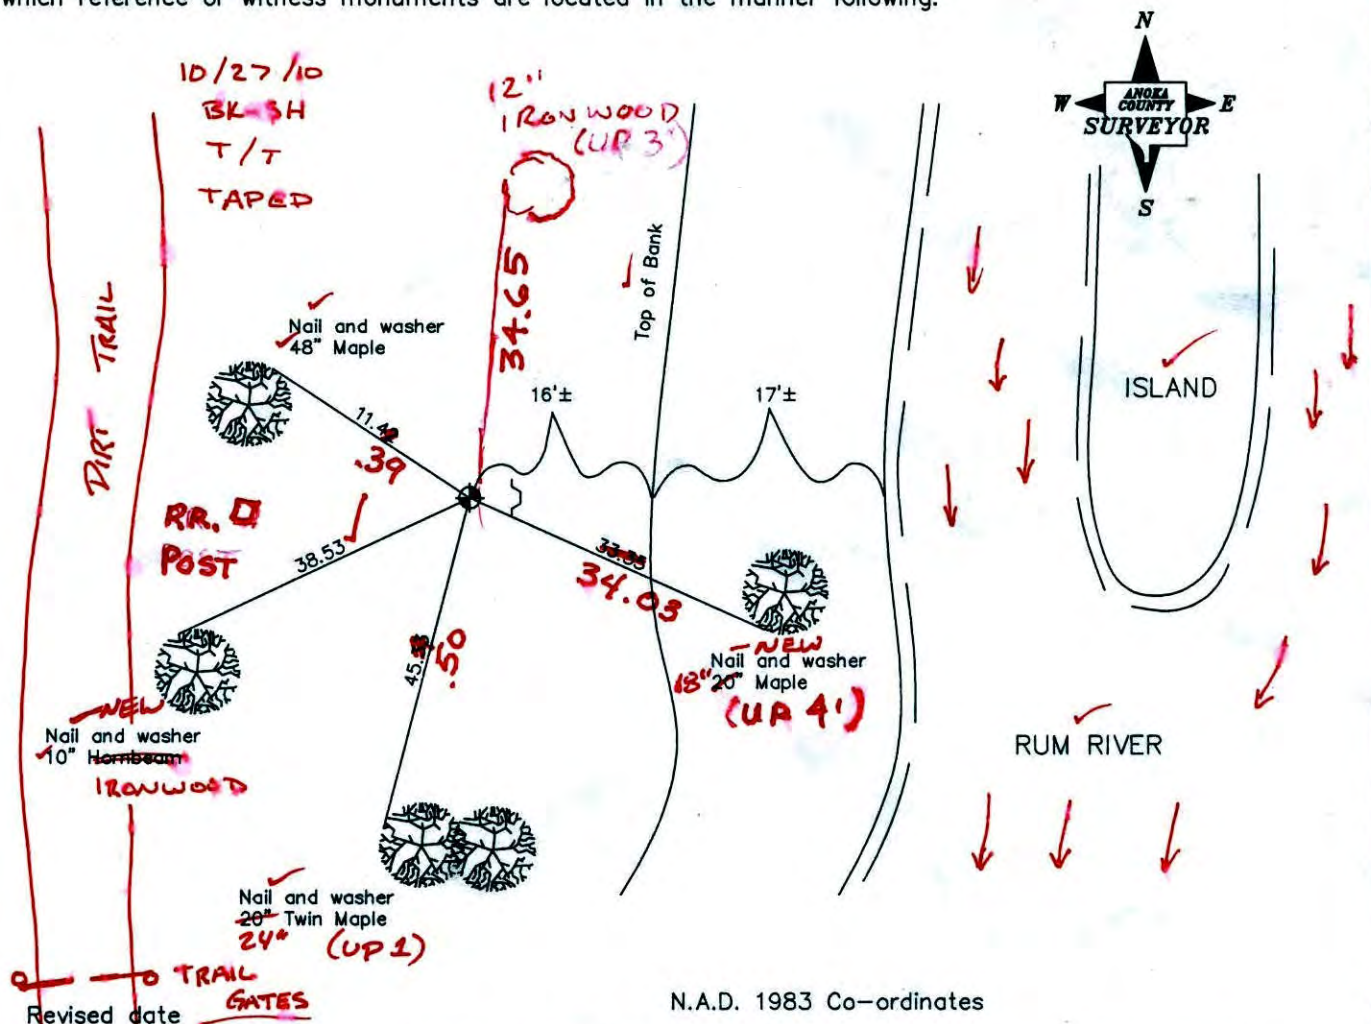 which reference or witness monuments are located in the manner following:
10/27/10
BK-SH
T/T
TAPED
12"
IRONWOOD
(UP 3')
34.65
Top of Bank
N
W
ANOKA
COUNTY
E
SURVEYOR
S
DIRT TRAIL
Nail and washer
48" Maple
11.42
.39
16'±
17'±
ISLAND
RR.
POST
38.53
33.35
34.03
45.
.50
NEW
Nail and washer
18" 20" Maple
(UP 4')
NEW
Nail and washer
10" Hornbeam
IRONWOOD
RUM RIVER
Nail and washer
20" Twin Maple
24" (UP 1)
TRAIL
GATES
Revised date
N.A.D. 1983 Co-ordinates